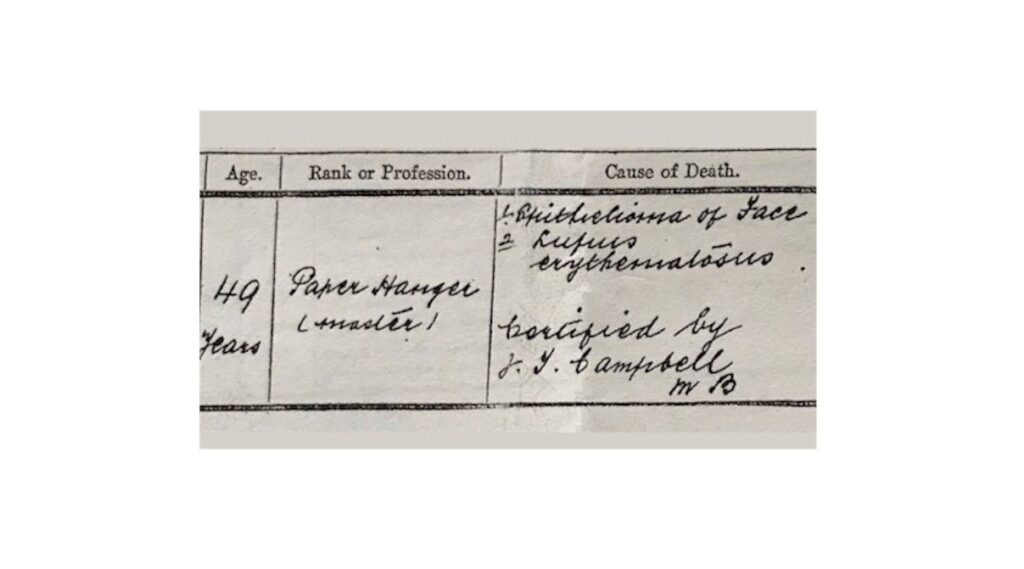 Age. Rank or Profession. Cause of Death.
49
Years
Paper Hanger
(master)
1. Epithelioma of Face
2 Lupus
erythematosus.
Certified by
J. T. Campbell
M B